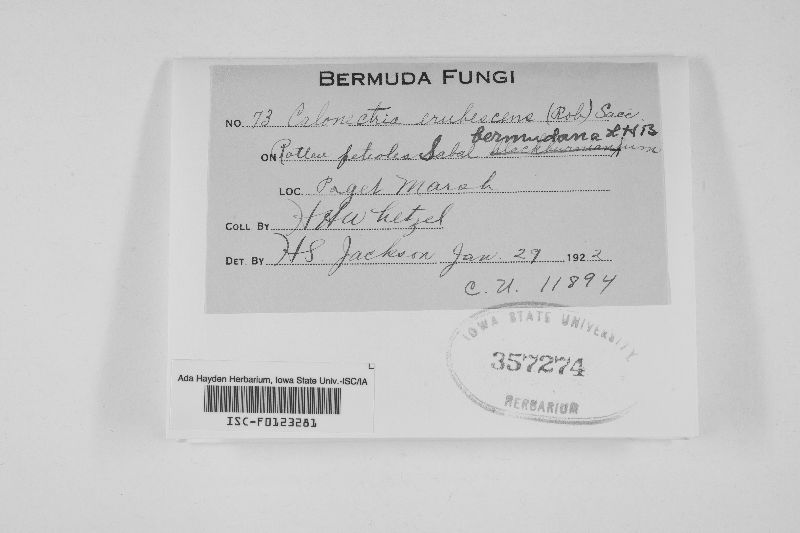 BERMUDA FUNGI
NO. 73 Calonectria erubescens (Rob) Sacc
bermudana LHB
ON Rotten petioles Sabal blackburnianum
LOC. Paget Marsh
COLL. BY HH Whetzel
DET. BY HS Jackson Jan. 29 1922
C.U. 11894
IOWA STATE UNIVERSITY
357274
HERBARIUM
Ada Hayden Herbarium, Iowa State Univ.-ISC/IA
ISC-F0123281